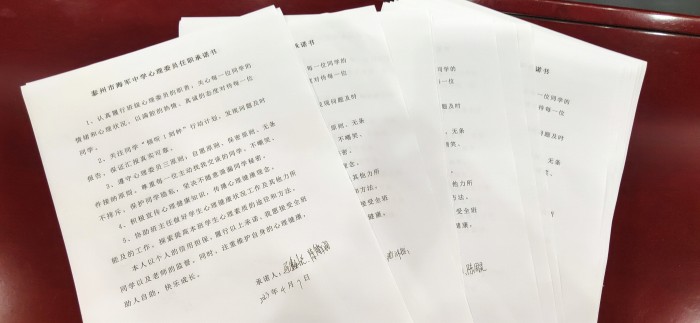 泰州市海军中学心理委员任职承诺书
1、认真履行班级心理委员的职责，关心每一位同学的
情绪和心理状况，以满腔的热情、真诚的态度对待每一位
同学。
2、关注同学“倾听1刻钟”行动计划，发现问题及时
报告，保证汇报真实可靠。
3、遵守心理委员三原则：自愿原则、保密原则、无条
件接纳原则。尊重每一位主动找我交谈的同学，不嘲笑、
不排斥，保护同学隐私，坚决不随意泄漏同学秘密。
4、积极宣传心理健康知识，传播心理健康观念。
5、协助班主任做好学生心理健康状况工作及其他力所
能及的工作。探索提高本班学生心理素质的途径和方法。
本人以个人的信用担保，履行以上承诺，我愿接受全班
同学以及老师的监督。同时，注重维护自身的心理健康，
助人自助，快乐成长。
承诺人：
2023年4月7日
承诺书
每一位同学的
度对待每一位
发现问题及时
原则、无条
不嘲笑、
密。
念。
其他力所
方法。
接受全班
健康，
诺书
位同学的
待每一位
问题及时
、无条
笑、
力所
全班
康，